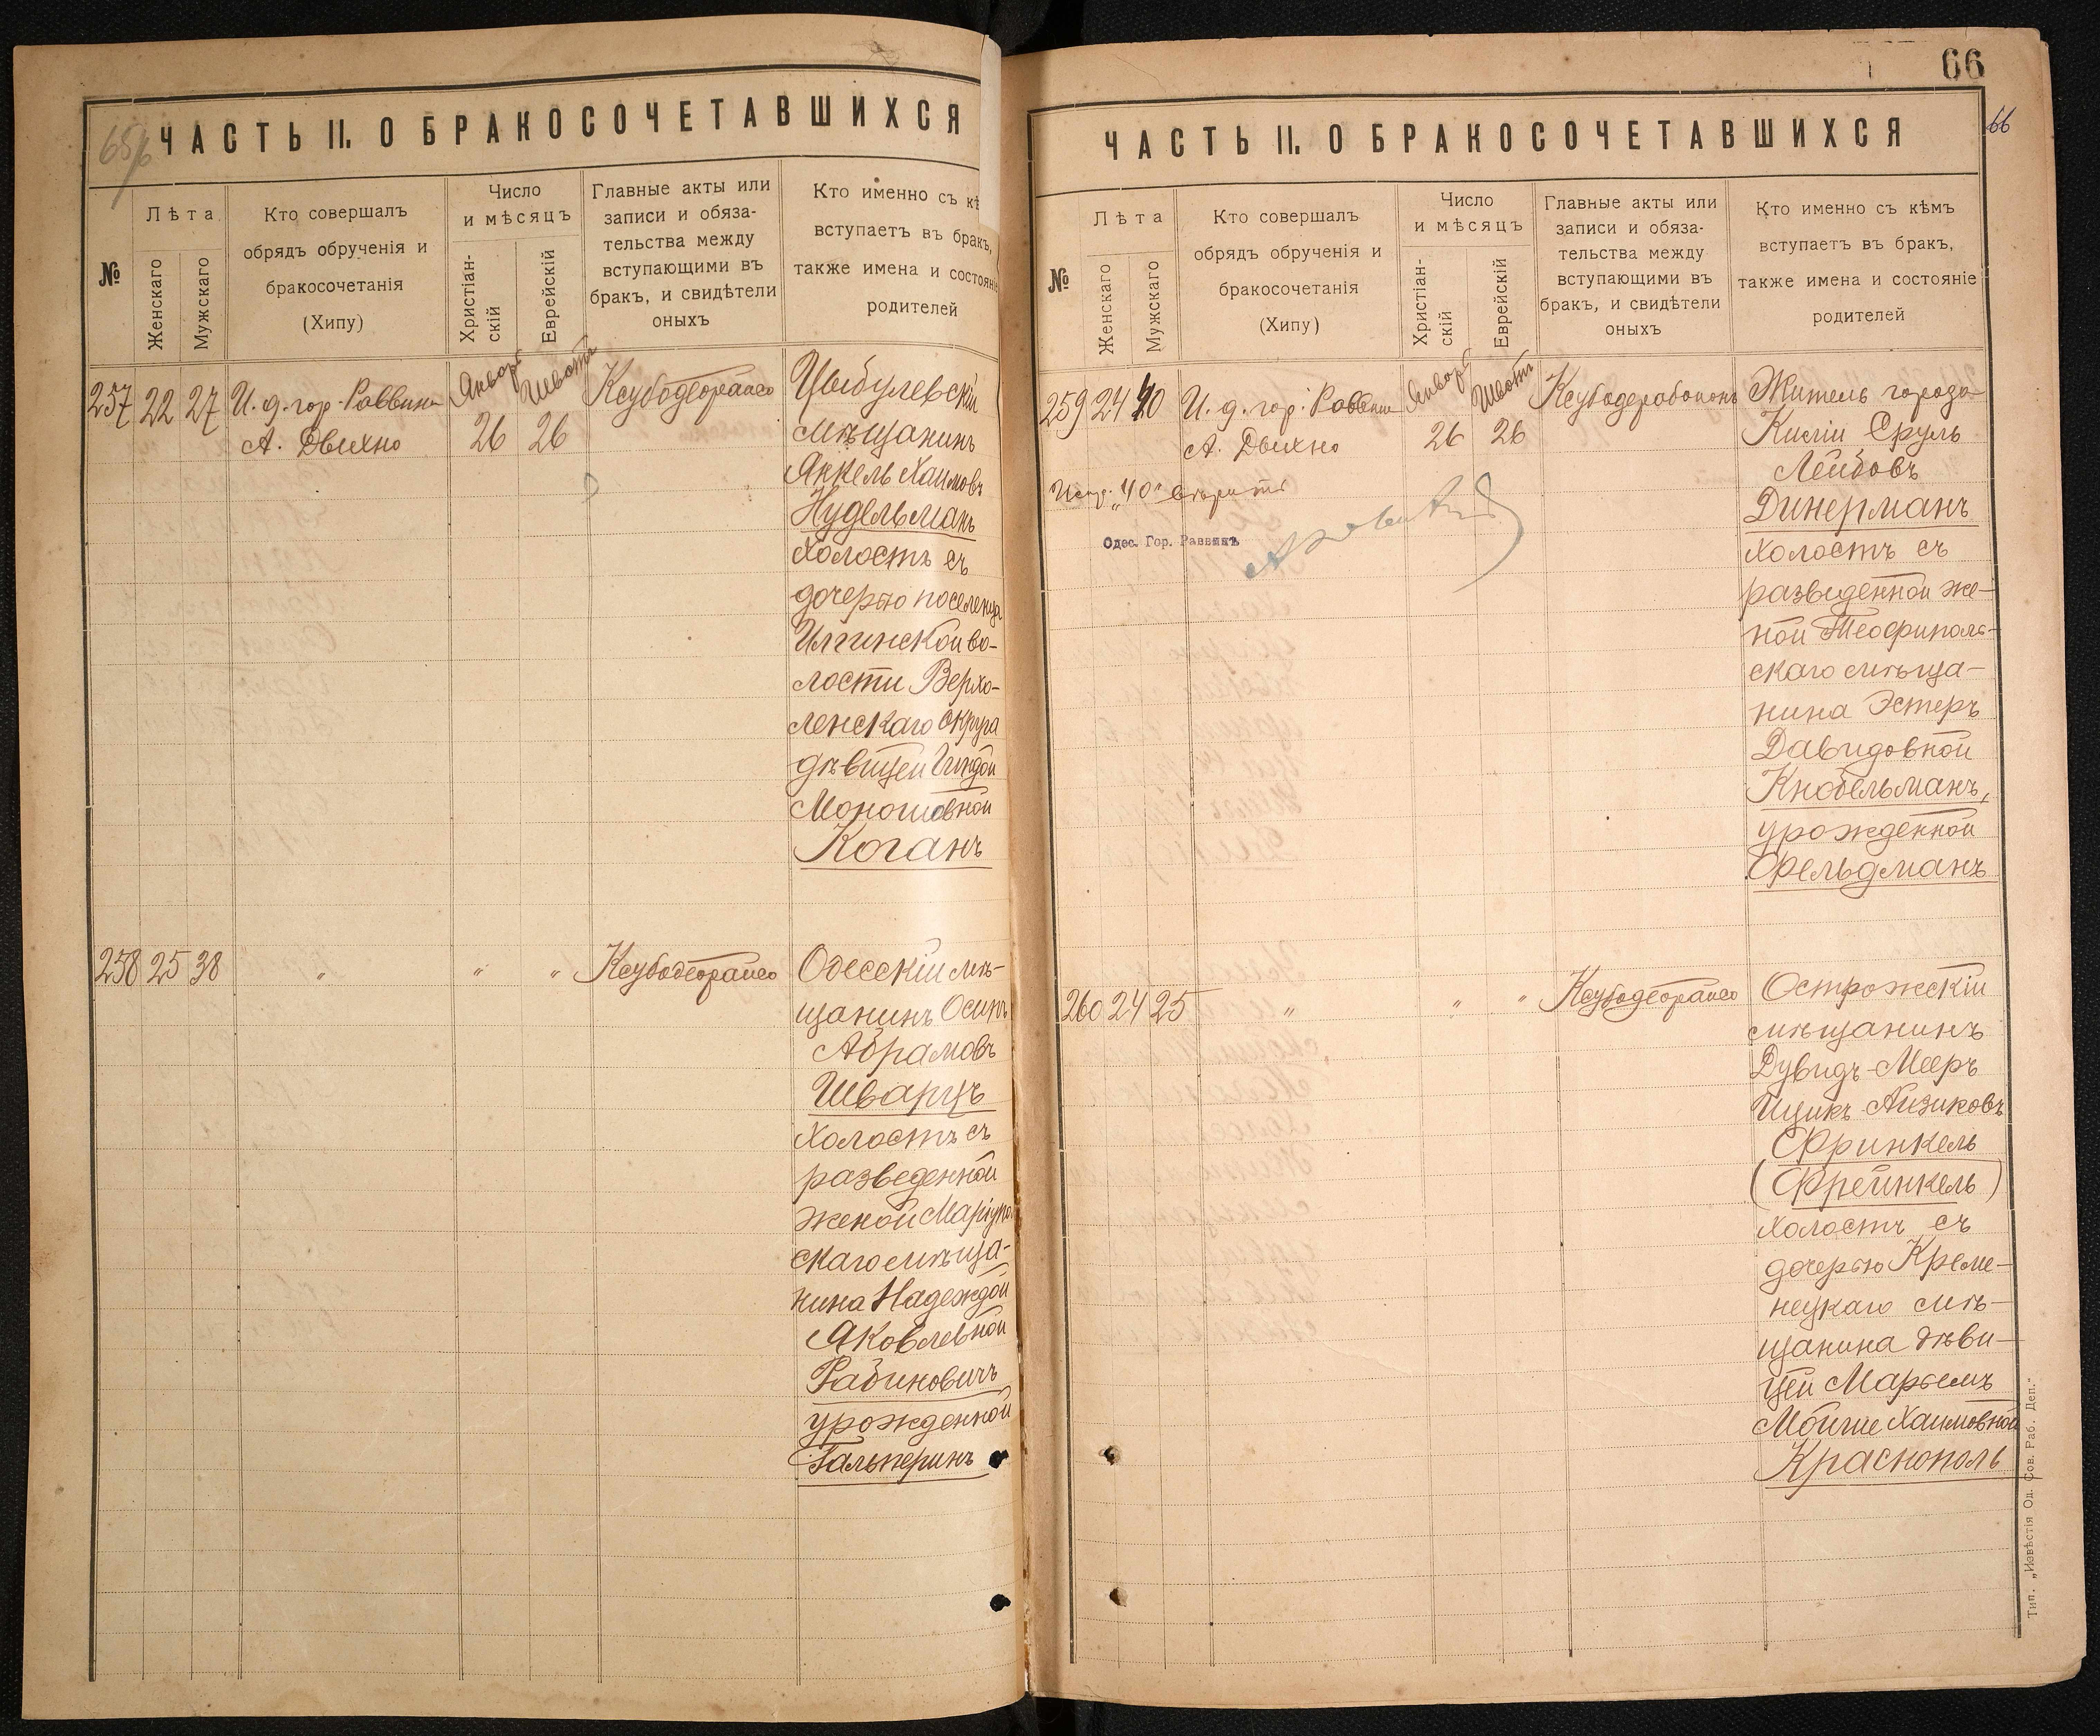 65/б
ЧАСТЬ II. О БРАКОСОЧЕТАВШИХСЯ
№
Лѣта
Женскаго
Мужскаго
Кто совершалъ
обрядъ обрученія и
бракосочетанія
(Хипу)
Число
и мѣсяцъ
Христіан-
скій
Еврейскій
Главные акты или
записи и обяза-
тельства между
вступающими въ
бракъ, и свидѣтели
оныхъ
Кто именно съ кѣ
вступаетъ въ бракъ,
также имена и состояніе
родителей
257 22 27 И. д. гор. Раввина
А. Двихно
Январь Шватъ
26 26
Ксубодеорайсо
Цыбулевскій
мѣщанинъ
Янкель Хаимовъ
Нудельманъ
холостъ съ
дочерью поселенца
Илгинской во-
лости Верхо-
ленскаго округа
дѣвицей Гиндой
Моношовной
Коганъ
258 25 38 " " " Ксубодеорайсо
Одесскій мѣ-
щанинъ Осипъ
Абрамовъ
Шварцъ
холостъ съ
разведенной
женой Маріупол
скаго мѣща-
нина Надеждой
Яковлевной
Рабиновичъ
урожденной
Гальперинъ
66
66
ЧАСТЬ II. О БРАКОСОЧЕТАВШИХСЯ
№
Лѣта
Женскаго
Мужскаго
Кто совершалъ
обрядъ обрученія и
бракосочетанія
(Хипу)
Число
и мѣсяцъ
Христіан-
скій
Еврейскій
Главные акты или
записи и обяза-
тельства между
вступающими въ
бракъ, и свидѣтели
оныхъ
Кто именно съ кѣмъ
вступаетъ въ бракъ,
также имена и состояніе
родителей
259 24 40 И. д. гор. Раввина
А. Двихно
Январь Шватъ
26 26
Испр. "40"
Одес. Гор. Раввинъ
Житель города
Киліи Сруль
Лейбовъ
Динерманъ
холостъ съ
разведенной же-
ной Теофиполь-
скаго мѣща-
нина Эстеръ
Давидовной
Кнобельманъ,
урожденной
Фельдманъ
260 24 25 " " " Ксубодеорайсо
Острожскій
мѣщанинъ
Дувидъ-Мееръ
Ицикъ-Айзиковъ
Фринкель
(Фрейнкель)
холостъ съ
дочерью Креме-
нецкаго мѣ-
щанина дѣви-
цей Марьемъ
Мойше Хаимовной
Краснополь
Тип. „Извѣстія Од. Сов. Раб. Деп."